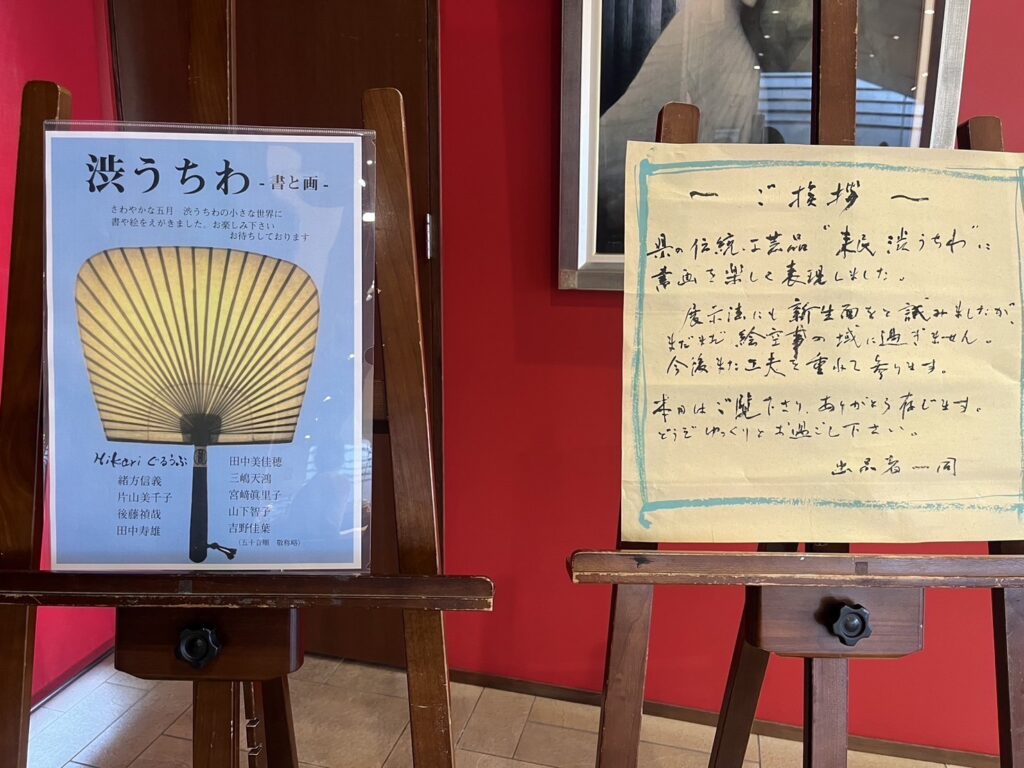 渋うちわ -書と画-
さわやかな五月 渋うちわの小さな世界に
書や絵をえがきました。お楽しみ下さい
お待ちしております
Hikari ぐるうぷ
緒方信義
片山美千子
後藤禎哉
田中寿雄
田中美佳穂
三嶋天鴻
宮﨑眞里子
山下智子
吉野佳葉
(五十音順 敬称略)
〜 ご挨拶 〜
県の伝統工芸品 "来民 渋うちわ" に
書画を楽しく表現しました。
展示法にも新生面をと試みましたが、
まだまだ絵空事の域に過ぎません。
今後また工夫を重ねて参ります。
本日はご覧下さり、ありがとう存じます。
どうぞゆっくりとお過ごし下さい。
出品者一同